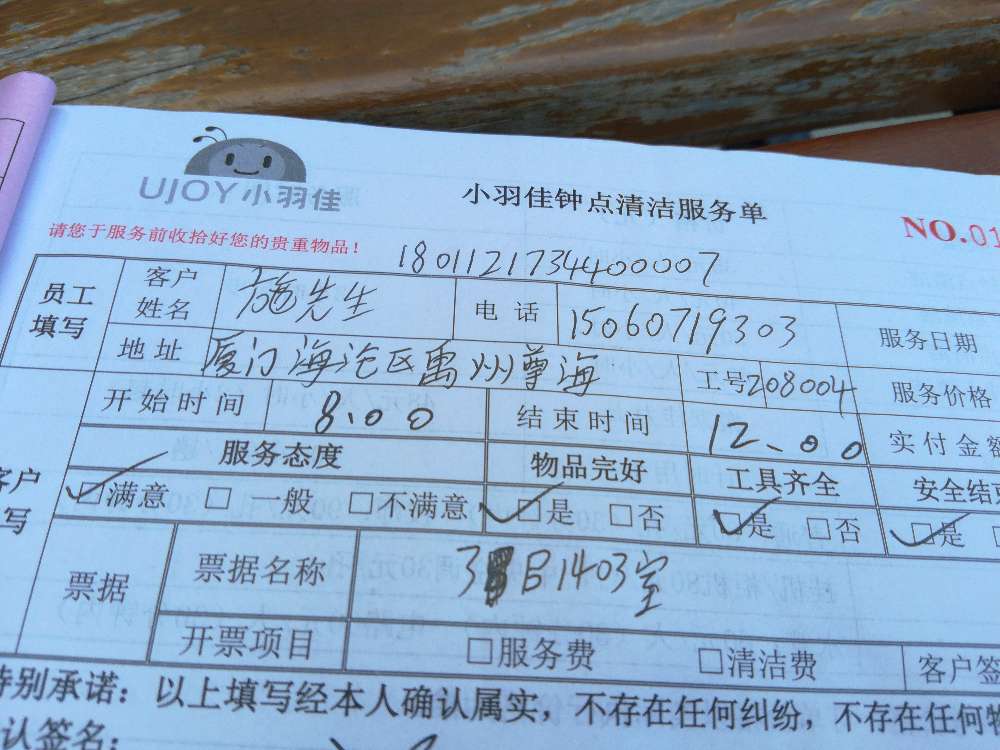 UJOY小羽佳
小羽佳钟点清洁服务单
NO.01
请您于服务前收拾好您的贵重物品！
1801121734400007
员工填写 客户姓名 施先生 电话 15060719303 服务日期
地址 厦门海沧区禹州尊海 工号 208004 服务价格
开始时间 8:00 结束时间 12:00 实付金额
服务态度 物品完好 工具齐全 安全结束
□满意 □一般 □不满意 □是 □否 □是 □否 □是
票据 票据名称 B1403室
开票项目 □服务费 □清洁费 客户签
特别承诺：以上填写经本人确认属实，不存在任何纠纷，不存在任何物
认签名：